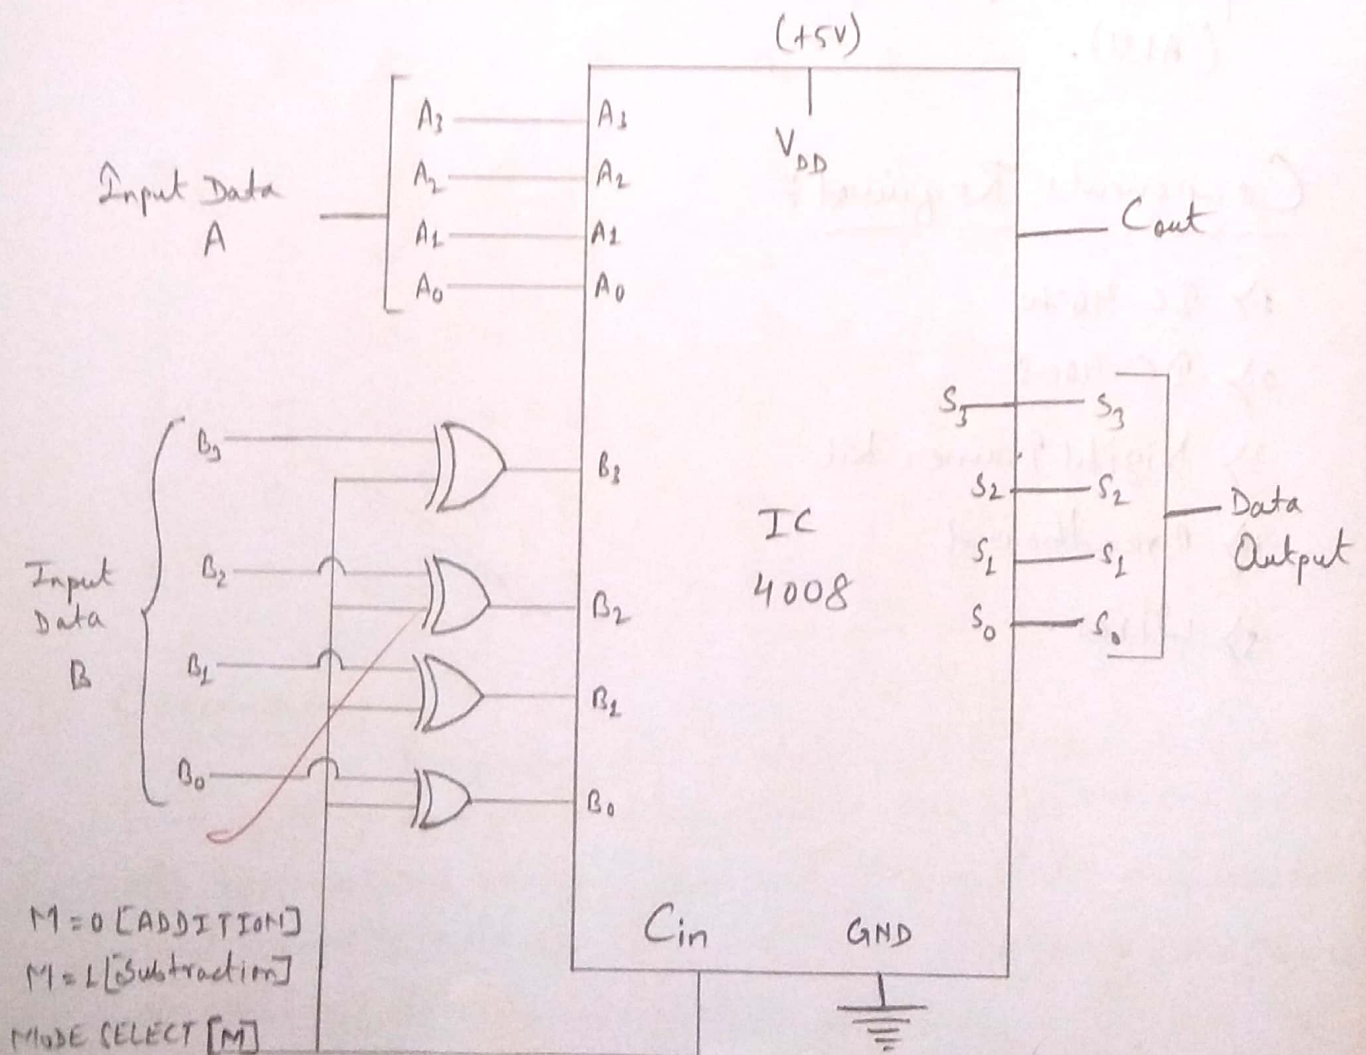 (+5V)
V_DD
Input Data
A
A3
A2
A1
A0
A3
A2
A1
A0
Cout
Input
Data
B
B3
B2
B1
B0
B3
B2
B1
B0
IC
4008
S3
S2
S1
S0
S3
S2
S1
S0
Data
Output
M=0 [ADDITION]
M=1 [Subtraction]
MODE SELECT [M]
Cin
GND